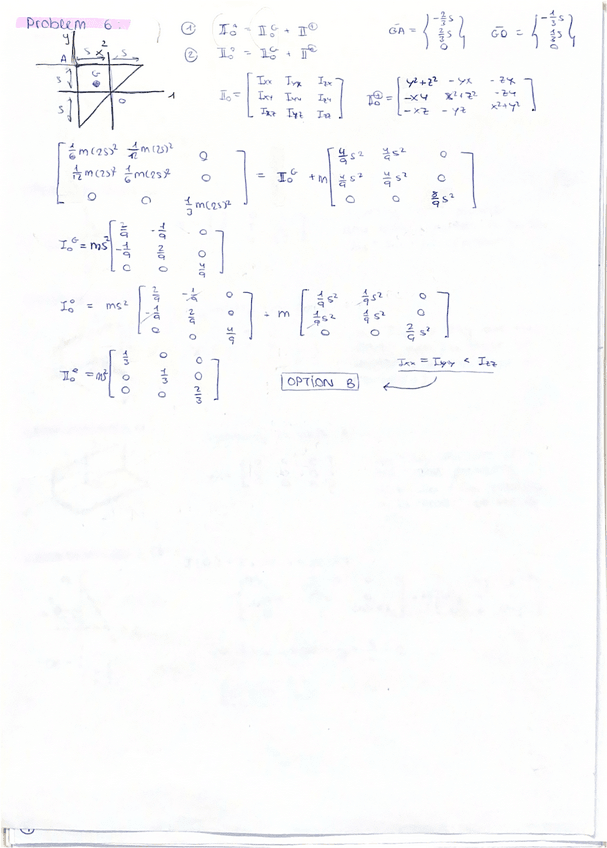 Problem 6.
① II₀ᴬ = II₀ᴳ + II^①
② II₀ᵒ = II₀ᴳ + II^②
GA = { -2/3 s  2/3 s  0 }
GO = { -1/3 s  1/3 s  0 }
y s x 2 s
A
s G
O 1
s
II₀ = [ Ixx Iyx Izx
Ixy Iyy Izy
Ixz Iyz Izz ]
I₀^① = [ y²+z² -yx -zx
-xy x²+z² -zy
-xz -yz x²+y² ]
[ 1/6 m(2s)² 1/12 m(2s)² 0
1/12 m(2s)² 1/6 m(2s)² 0
0 0 1/3 m(2s)² ] = II₀ᴳ + m [ 4/9 s² 4/9 s² 0
4/9 s² 4/9 s² 0
0 0 8/9 s² ]
I₀ᴳ = ms² [ 2/9 -1/9 0
-1/9 2/9 0
0 0 4/9 ]
I₀ᵒ = ms² [ 2/9 -1/9 0
-1/9 2/9 0
0 0 4/9 ] + m [ 1/9 s² 1/9 s² 0
1/9 s² 1/9 s² 0
0 0 2/9 s² ]
II₀ᵒ = ms² [ 1/3 0 0
0 1/3 0
0 0 2/3 ]
OPTION B
Ixx = Iyy < Izz